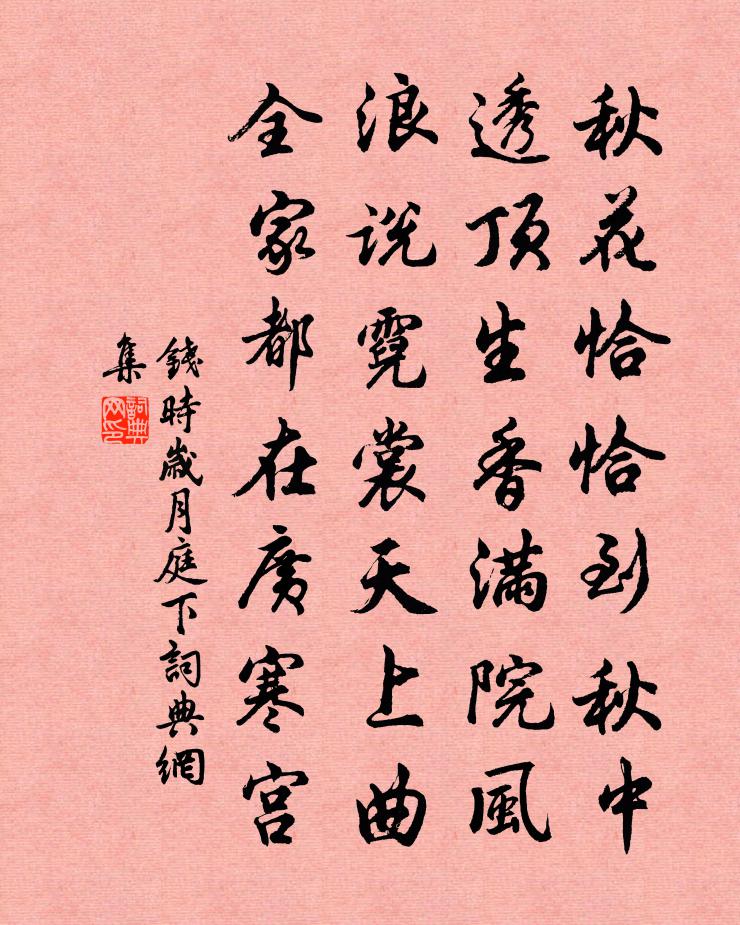 秋花恰恰到秋中
透頂生香滿院風
浪説霓裳天上曲
全家都在廣寒宮
錢時歲月庭下詞典網
集
詞典
网印